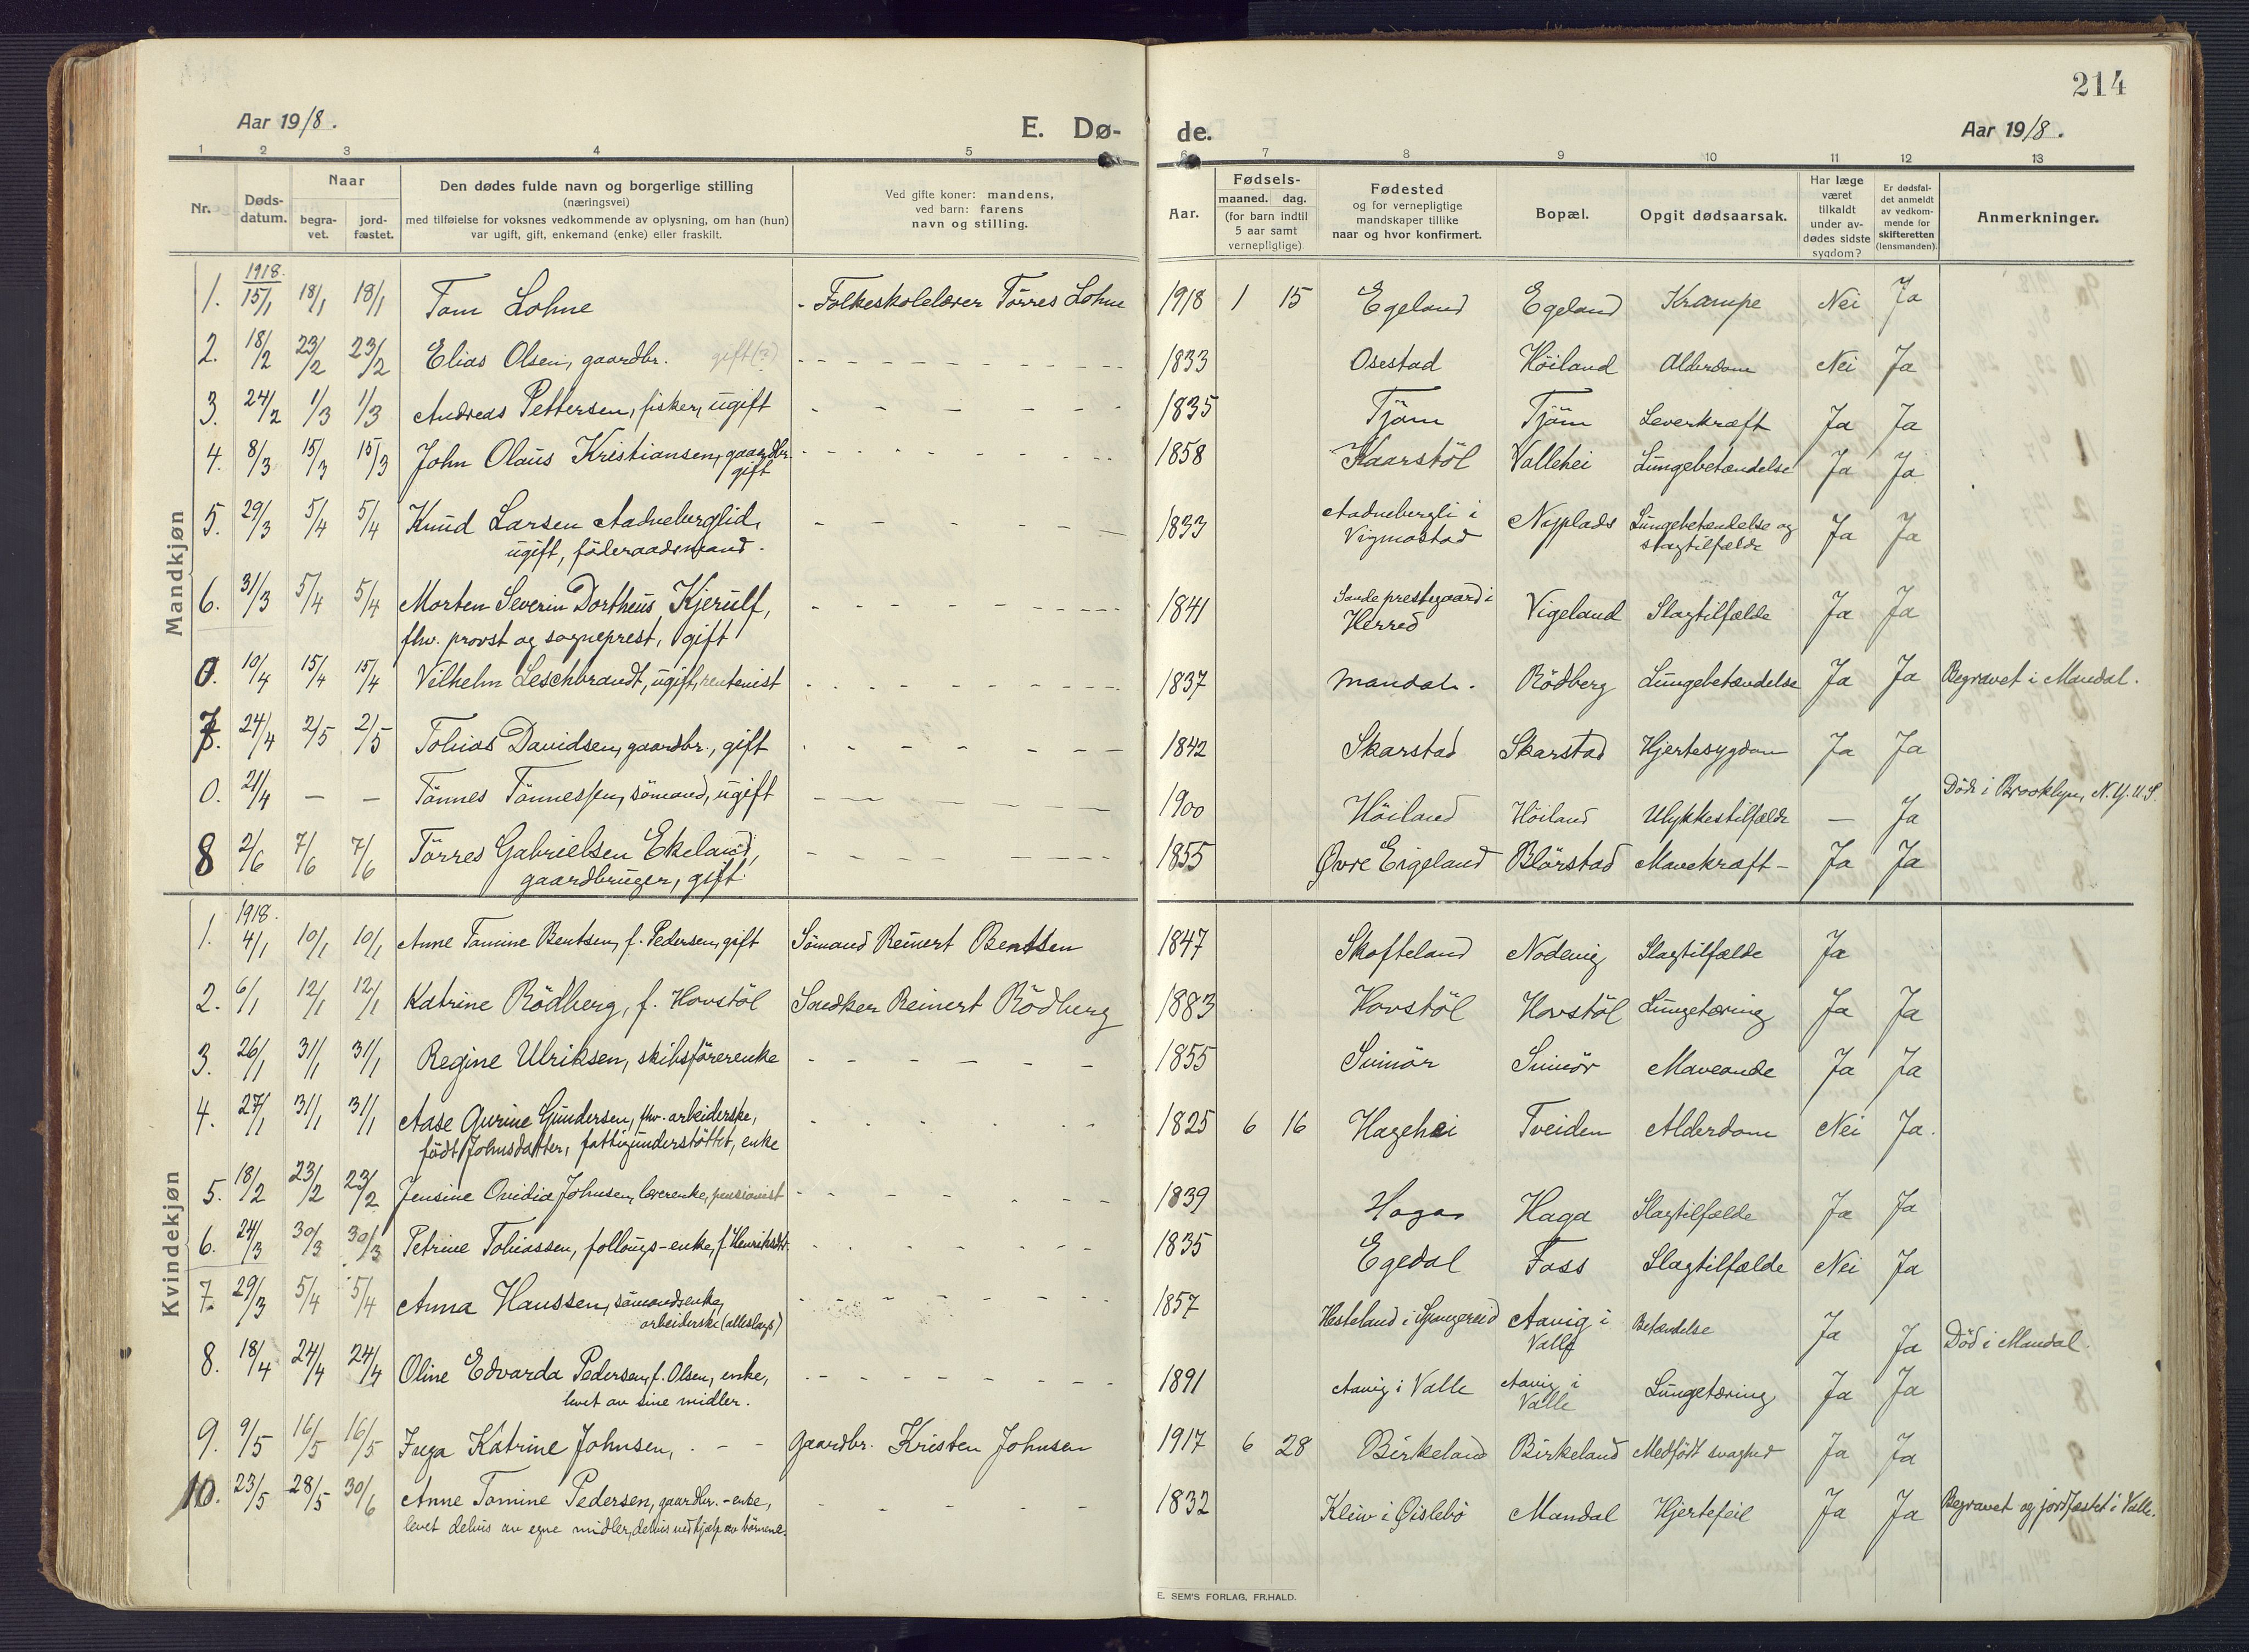 214
Aar 1918.
E. Dø-
de.
Aar 1918.
1 2 3 4 5 6 7 8 9 10 11 12 13
Nr.
Døds-
datum.
Naar
begra-
vet.
jord-
fæstet.
Den dødes fulde navn og borgerlige stilling
(næringsvei)
med tilføielse for voksnes vedkommende av oplysning, om han (hun)
var ugift, gift, enkemand (enke) eller fraskilt.
Ved gifte koner: mandens,
ved barn: farens
navn og stilling.
Aar.
Fødsels-
maaned. dag.
(for barn indtil
5 aar samt
vernepligtige).
Fødested
og for vernepligtige
mandskaper tillike
naar og hvor konfirmert.
Bopæl.
Opgit dødsaarsak.
Har læge
været
tilkaldt
under av-
dødes sidste
sygdom?
Er dødsfal-
det anmeldt
av vedkom-
mende for
skifteretten
(lensmanden).
Anmerkninger.
Mandkjøn
1918.
1. 15/1 18/1 18/1 Tom Lohne - Folkeskolelærer Törres Lohne 1918 1 15 Egeland Egeland Krampe Nei Ja
2. 18/2 23/2 23/2 Elias Olsen, gaardbr. gift(?) 1833 Osestad Höiland Alderdom Nei Ja
3. 24/2 1/3 1/3 Andreas Pettersen, fisker, ugift 1835 Tjöm Tjöm Leverkræft Ja Ja
4. 8/3 15/3 15/3 John Olaus Kristiansen, gaardbr. 1858 Kaarstöl Vallehei Lungebetændelse Ja Ja
gift
5. 29/3 5/4 5/4 Knud Larsen Aadneberglid, 1833 Aadnebergli i Nipplads Lungebetændelse og Ja Ja
ugift, föderaadsmand. Vigmostad slagtilfælde
6. 31/3 5/4 5/4 Morten Severin Dortheus Kjerulf, 1841 Sande prestegaard i Vigeland Slagtilfælde Ja Ja
fhv. provst og sogneprest, gift Herred
0. 10/4 15/4 15/4 Vilhelm Leschbrandt, ugift, rentenist 1837 Mandal. Rödberg Lungebetændelse Ja Ja Begravet i Mandal.
7. 24/4 2/5 2/5 Tobias Davidsen, gaardbr., gift 1842 Skarstad Skarstad Hjertesygdom Ja Ja
0. 21/4 - - Tönnes Tönnessen, sömand, ugift 1900 Höiland Höiland Ulykkestilfælde - Ja Död i Brooklyn, N.Y. U.S.
8 2/6 7/6 7/6 Törres Gabrielsen Ekeland, 1855 Øvre Eigeland Blörstad Mavekræft - Ja Ja
gaardbruger, gift.
Kvindekjøn
1918.
1. 4/1 10/1 10/1 Anne Tomine Bentsen, f. Pedersen, gift Sömand Reinert Bentsen 1847 Skofteland Nodevig Slagtilfælde Ja
2. 6/1 12/1 12/1 Katrine Rödberg, f. Hovstöl Snedker Reinert Rödberg 1883 Hovstöl Hovstöl Lungetæring Ja Ja
3. 26/1 31/1 31/1 Regine Ulriksen, skibsförerenke 1855 Svinör Svinör Maveonde Ja Ja
4. 27/1 31/1 31/1 Aase Gurine Gundersen, fhv. arbeiderske, 1825 6 16 Hagehei Tveiden Alderdom Nei Ja.
födt Johnsdatter, fattigunderstöttet, enke
5. 18/2 23/2 23/2 Jensine Ovidia Johnsen, lærerenke, pensionist 1839 Haga Haga Slagtilfælde Ja Ja
6. 24/3 30/3 30/3 Petrine Tobiassen, follougs-enke, f. Henriksdtr. 1835 Egedal Foss Slagtilfælde Nei Ja
7. 29/3 5/4 5/4 Anna Hanssen, sömandsenke, 1857 Hesteland i Spangereid Aavig i Betændelse Ja Ja Död i Mandal.
arbeiderske (alleslags) Valle
8. 18/4 24/4 24/4 Oline Edvarda Pedersen, f. Olsen, enke, 1891 Aavig i Valle Aavig i Lungetæring Ja Ja
levet av sine midler. Valle
9. 9/5 16/5 16/5 Inga Katrine Johnsen, - - Gaardbr. Kristen Johnsen 1917 6 28 Birkeland Birkeland Medfödt svaghed Ja Ja
10. 23/5 28/5 30/6 Anne Tomine Pedersen, gaardbr.-enke, 1832 Kleiv i Øislebö Mandal Hjertefeil Ja Ja Begravet og jordfæstet i Valle.
levet delvis av egne midler, delvis ved hjælp av börnene.
E. SEM'S FORLAG, FR.HALD.